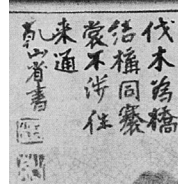 伐木為橋
結構同褰
裳不涉徃
来通
乾山省書